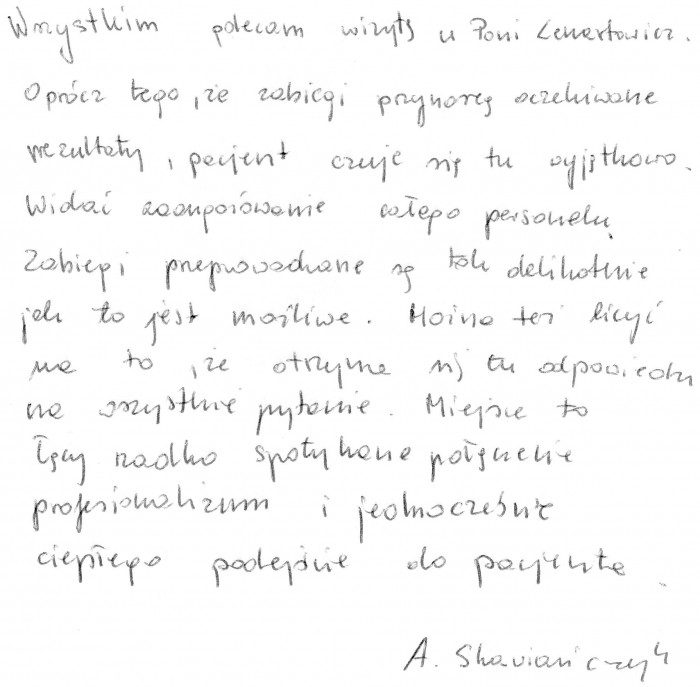 Wszystkim polecam wizytę u Pani Lenartowicz.
Oprócz tego, że zabiegi przynoszą oczekiwane
rezultaty, pacjent czuje się tu wyjątkowo.
Widać zaangażowanie całego personelu
Zabiegi przeprowadzane są tak delikatnie
jak to jest możliwe. Można też liczyć
na to, że otrzyma się tu odpowiedzi
na wszystkie pytania. Miejsce to
łączy rzadko spotykane połączenie
profesjonalizum i jednocześnie
ciepłego podejście do pacjenta.
A.